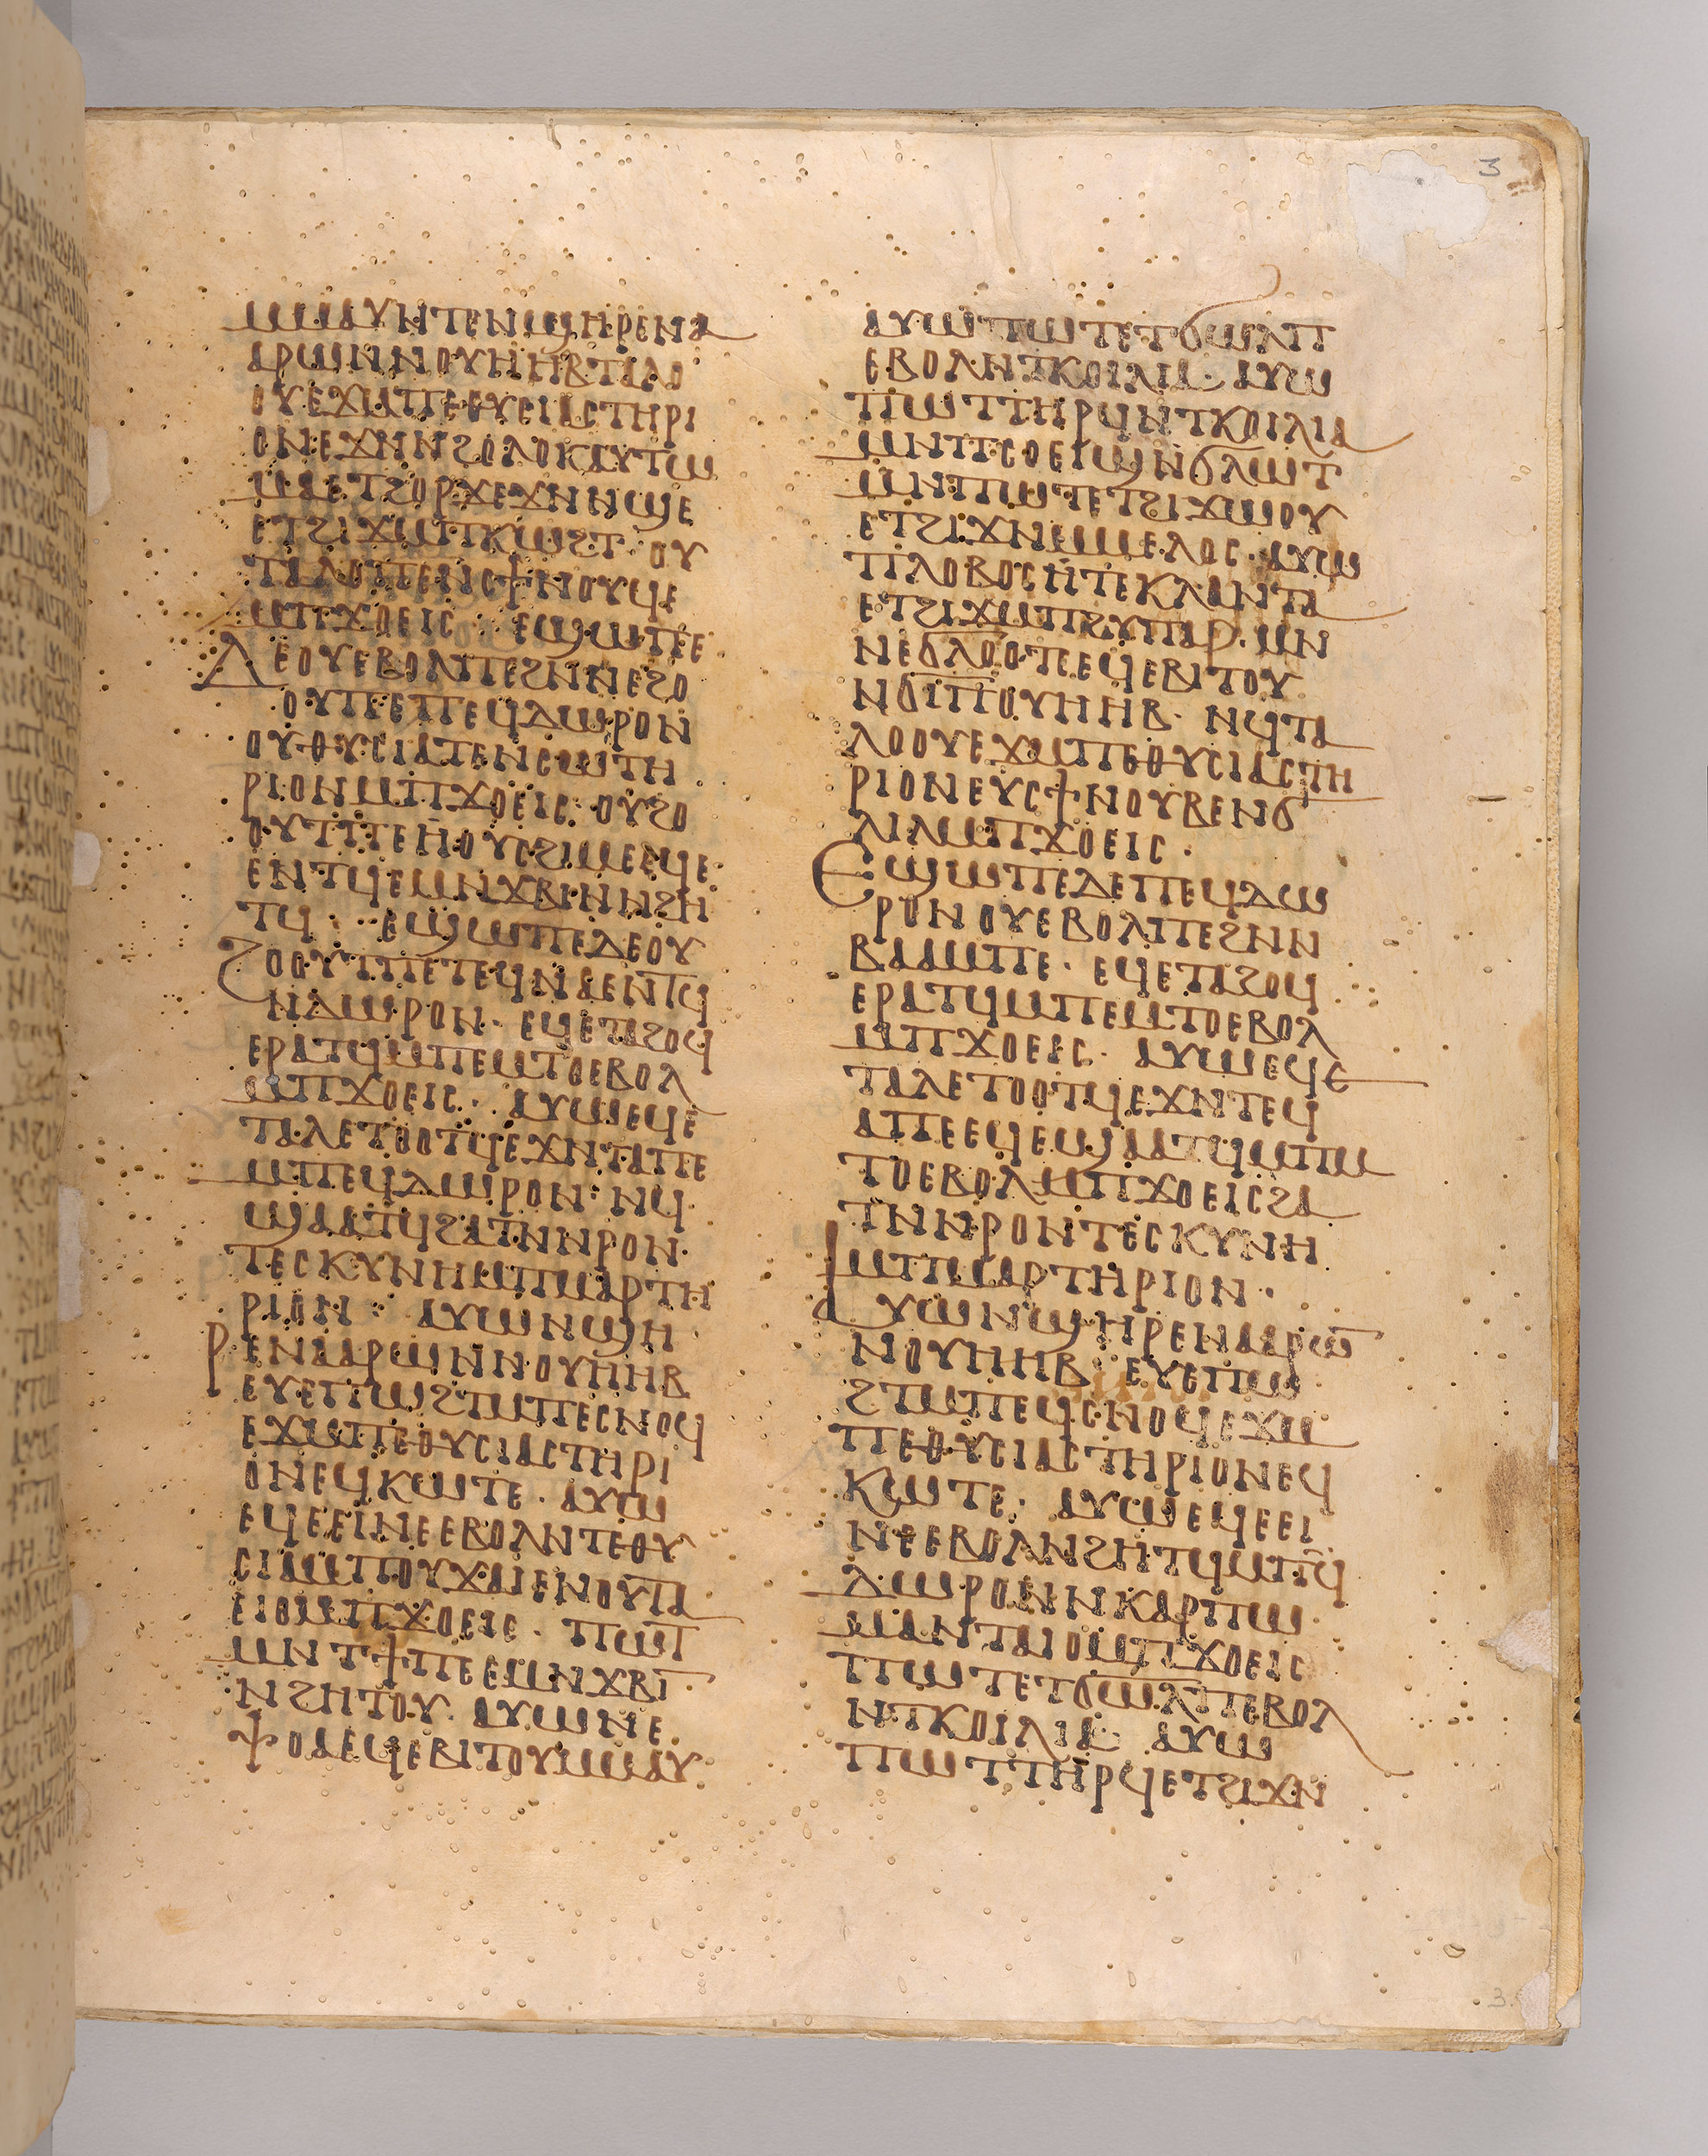 3
ⲙⲙⲁⲩⲛⲧⲉⲛϣⲏⲣⲉⲛⲁ
ⲁⲣⲱⲛⲛⲟⲩⲏⲏⲃⲧⲁⲗⲟ
ⲟⲩⲉϫⲙⲡⲉⲑⲩⲥⲓⲁⲥⲧⲏⲣⲓ
ⲟⲛⲉϫⲛⲛϩⲟⲗⲟⲕⲁⲩⲧⲱ
ⲙⲁⲉⲧϩⲟⲣϫⲉϫⲛⲛϣⲉ
ⲉⲧϩⲓϫⲙⲡⲕⲱϩⲧ· ⲟⲩ
ⲧⲁⲗⲟⲡⲉⲛⲥϯⲛⲟⲩϥⲉ
ⲙⲡϫⲟⲉⲓⲥ : ⲉϣⲱⲡⲉ
ⲇⲉⲟⲩⲉⲃⲟⲗⲡⲉϩⲛⲛⲉϩⲟ
ⲟⲩⲡⲉⲡⲉϥⲇⲱⲣⲟⲛ
ⲟⲩⲑⲩⲥⲓⲁⲧⲉⲛⲥⲱⲧⲏ
ⲣⲓⲟⲛⲙⲡϫⲟⲉⲓⲥ: ⲟⲩϩⲟ
ⲟⲩⲧⲡⲉⲛⲟⲩⲥϩⲓⲙⲉⲉϥⲉ
ⲉⲛⲧϥⲉⲙⲛϫⲃⲓⲛⲛϩⲏ
ⲧϥ: ⲉϣⲱⲡⲉⲇⲉⲟⲩ
ϩⲟⲟⲩⲧⲡⲉⲧⲉϥⲛⲁⲉⲛⲧϥ
ⲛⲇⲱⲣⲟⲛ· ⲉϥⲉⲧⲁϩⲟϥ
ⲉⲣⲁⲧϥⲙⲡⲉⲙⲧⲟⲉⲃⲟⲗ
ⲙⲡϫⲟⲉⲓⲥ· ⲁⲩⲱⲉϥⲉ
ⲧⲁⲗⲉⲧⲟⲟⲧϥⲉϫⲛⲧⲁⲡⲉ
ⲙⲡⲉϥⲇⲱⲣⲟⲛ: ⲛϥ
ϣⲁⲁⲧϥϩⲁⲧⲛⲛⲣⲟⲛ·
ⲧⲉⲥⲕⲩⲛⲏⲙⲡⲙⲁⲣⲧⲏ
ⲣⲓⲟⲛ: ⲁⲩⲱⲛϣⲏ
ⲣⲉⲛⲁⲁⲣⲱⲛⲛⲟⲩⲏⲏⲃ
ⲉⲩⲉⲡⲱϩⲧⲙⲡⲉⲥⲛⲟϥ
ⲉϫⲙⲡⲉⲑⲩⲥⲓⲁⲥⲧⲏⲣⲓ
ⲟⲛⲉϥⲕⲱⲧⲉ· ⲁⲩⲱ
ⲉϥⲉⲉⲓⲛⲉⲉⲃⲟⲗⲛⲧⲉⲑⲩ
ⲥⲓⲁⲙⲡⲟⲩϫⲁⲓⲉⲛⲟⲩⲧⲁ
ⲉⲓⲟⲙⲡϫⲟⲉⲓⲥ· ⲡⲱⲧ
ⲙⲛⲧϯⲡⲉⲉⲙⲛϫⲃⲓ
ⲛϩⲏⲧⲟⲩ· ⲁⲩⲱⲛⲉ
ϯⲟⲁⲉϥⲉⲃⲓⲧⲟⲩⲙⲙⲁⲩ
ⲁⲩⲱⲡⲱⲧⲉⲧϭⲱⲗⲡ
ⲉⲃⲟⲗⲛⲧⲕⲟⲓⲗⲓⲁ· ⲁⲩⲱ
ⲡⲱⲧⲧⲏⲣϥⲛⲧⲕⲟⲓⲗⲓⲁ
ⲙⲛⲡⲥⲟⲉⲓϣⲛϭⲗⲱⲧ
ⲙⲛⲡⲱⲧⲉⲧϩⲓϫⲱⲟⲩ
ⲉⲧϩⲓϫⲛⲉⲙⲉⲗⲟⲥ· ⲁⲩⲱ
ⲡⲗⲟⲃⲟⲥⲛⲧⲉⲕⲗⲁⲛⲧⲁ
ⲉⲧϩⲓϫⲙⲡϩⲩⲡⲁⲣ· ⲙⲛ
ⲛⲉϭⲗⲟⲟⲧⲉⲉϥⲉⲃⲓⲧⲟⲩ
ⲛϭⲓⲡⲟⲩⲏⲏⲃ· ⲛϥⲧⲁ
ⲗⲟⲟⲩⲉϫⲙⲡⲉⲑⲩⲥⲓⲁⲥⲧⲏ
ⲣⲓⲟⲛⲉⲩⲥϯⲛⲟⲩⲃⲉⲛϭ
ⲗⲓⲗⲙⲡϫⲟⲉⲓⲥ·
ⲉϣⲱⲡⲉⲇⲉⲡⲉϥⲇⲱ
ⲣⲟⲛⲟⲩⲉⲃⲟⲗⲡⲉϩⲛⲛ
ⲃⲁⲁⲙⲡⲉ· ⲉϥⲉⲧⲁϩⲟϥ
ⲉⲣⲁⲧϥⲙⲡⲉⲙⲧⲟⲉⲃⲟⲗ
ⲙⲡϫⲟⲉⲓⲥ· ⲁⲩⲱⲉϥⲉ
ⲧⲁⲗⲉⲧⲟⲟⲧϥⲉϫⲛⲧⲉϥ
ⲁⲡⲉⲉϥⲉϣⲁⲁⲧϥⲙⲡⲙ
ⲧⲟⲉⲃⲟⲗⲙⲡϫⲟⲉⲓⲥϩⲁ
ⲧⲛⲛⲣⲟⲛⲧⲉⲥⲕⲩⲛⲏ
ⲙⲡⲙⲁⲣⲧⲏⲣⲓⲟⲛ·
ⲁⲩⲱⲛϣⲏⲣⲉⲛⲁⲁⲣⲱ̅
ⲛⲟⲩⲏⲏⲃ ⲉⲩⲉⲡⲱ
ϩⲧⲙⲡⲉϥⲥⲛⲟϥⲉϫⲙ
ⲡⲉⲑⲩⲥⲓⲁⲥⲧⲏⲣⲓⲟⲛⲉϥ
ⲕⲱⲧⲉ· ⲁⲩⲱⲉϥⲉⲉⲓ
ⲛⲉⲉⲃⲟⲗⲛϩⲏⲧϥⲙⲡϥ
ⲇⲱⲣⲟⲛⲛⲕⲁⲣⲡⲱ
ⲙⲁⲛⲧⲁⲓⲟⲙⲡϫⲟⲉⲓⲥ
ⲡⲱⲧⲉⲧϭⲱⲗⲡⲉⲃⲟⲗ
ⲛⲧⲕⲟⲓⲗⲓⲁ· ⲁⲩⲱ
ⲡⲱⲧⲧⲏⲣϥⲉⲧϩⲓϫⲛ
3.